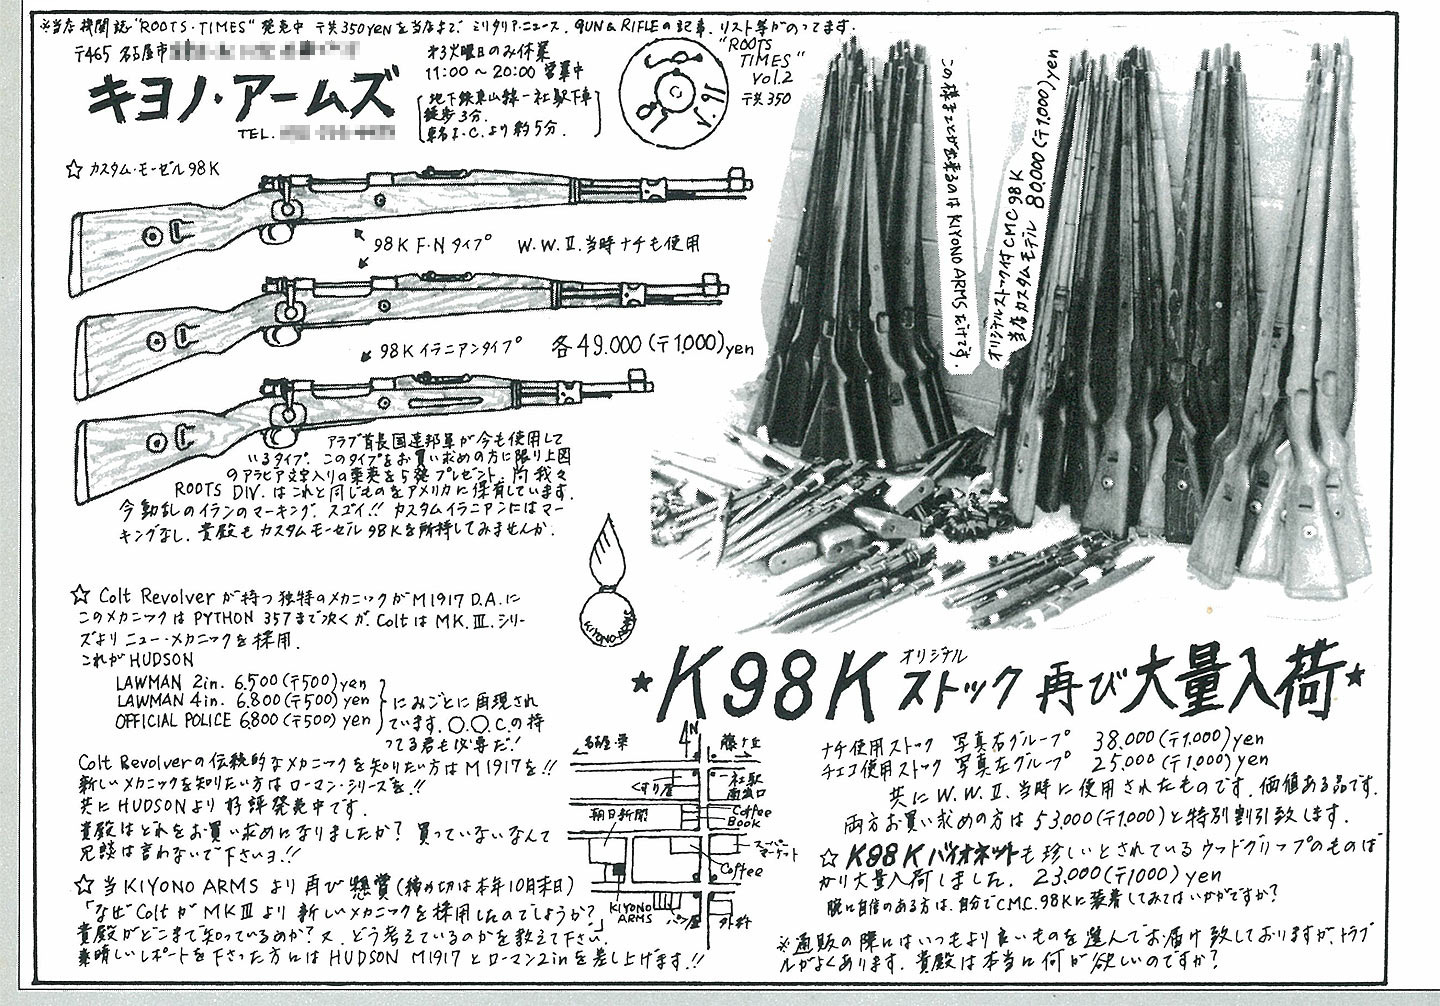 ※当店機関誌"ROOTS・TIMES" 発売中 〒共350yenを当店まで、ミリタリア・ニュース、GUN&RIFLEの記事、リスト等がのってます。
〒465 名古屋市
キヨノ・アームズ
TEL.
オ3火曜日のみ休業
11:00〜20:00 営業中
地下鉄東山線一社駅下車
徒歩3分.
東名I.C.より約5分.
"ROOTS
TIMES"
Vol.2
〒共350
☆カスタム・モーゼル98K
98K F・Nタイプ W.W.Ⅱ.当時ナチも使用
98Kイラニアンタイプ 各49.000(〒1.000)yen
アラブ首長国連邦軍が今も使用して
いるタイプ。このタイプをお買い求めの方に限り上図
のアラビア文字入りの薬莢を5発プレゼント、尚我々
ROOTS DIV.はこれと同じものをアメリカに保有しています。
今動乱のイランのマーキング、スゴイ!! カスタムイラニアンにはマー
キングなし、貴殿もカスタムモーゼル98Kを所持してみませんか。
KIYONO-ARMS
この様なことが出来るのはKIYONO ARMSだけです。
オリジナルストック付CMC98K
当店カスタムモデル 80,000(〒1,000)yen
☆Colt Revolverが持つ独特のメカニックがM1917 D.A.に
このメカニックはPYTHON 357まで次くが、ColtはMK.Ⅲ.シリー
ズよりニュー・メカニックを採用.
これがHUDSON
LAWMAN 2in. 6.500(〒500)yen
LAWMAN 4in. 6.800(〒500)yen
OFFICIAL POLICE 6800(〒500)yen
にみごとに再現され
ています。○.○.C.の持
ってる君も必要だ!
Colt Revolverの伝統的なメカニックを知りたい方はM1917を!!
新しいメカニックを知りたい方はローマン・シリーズを!!
共にHUDSONより好評発売中です。
貴殿はどれをお買い求めになりましたか? 買っていないなんて
冗談は言わないで下さいヨ!!
☆当KIYONO ARMSより再び懸賞(締め切は本年10月末日)
「なぜColtがMKⅢより新しいメカニックを採用したのでしょうか?」
貴殿がどこまで知っているのか?又、どう考えているのかを教えて下さい。
素晴しいレポートを下さった方にはHUDSON M1917とローマン2inを差し上げます!!
★K98K オリジナル ストック 再び大量入荷★
ナチ使用ストック 写真右グループ 38.000(〒1.000)yen
チェコ使用ストック 写真左グループ 25.000(〒1.000)yen
共にW.W.Ⅱ.当時に使用されたものです。価値ある品です.
両方お買い求めの方は53.000(〒1.000)と特別割引致します.
☆K98Kバイオネットも珍しいとされているウッドグリップのものば
かり大量入荷しました。 23.000(〒1000)yen
腕に自信のある方は、自分でCMC.98Kに装着してみてはいかがですか?
※通販の際にはいつもより良いものを選んでお届け致しておりますが、トラブ
ルがよくあります。貴殿は本当に何が欲しいのですか?
N
名古屋・栄
藤ヶ丘
くすり屋
一社駅
南出口
朝日新聞
Coffee
Book
スーパー
マーケット
Coffee
KIYONO
ARMS
パン屋
外科